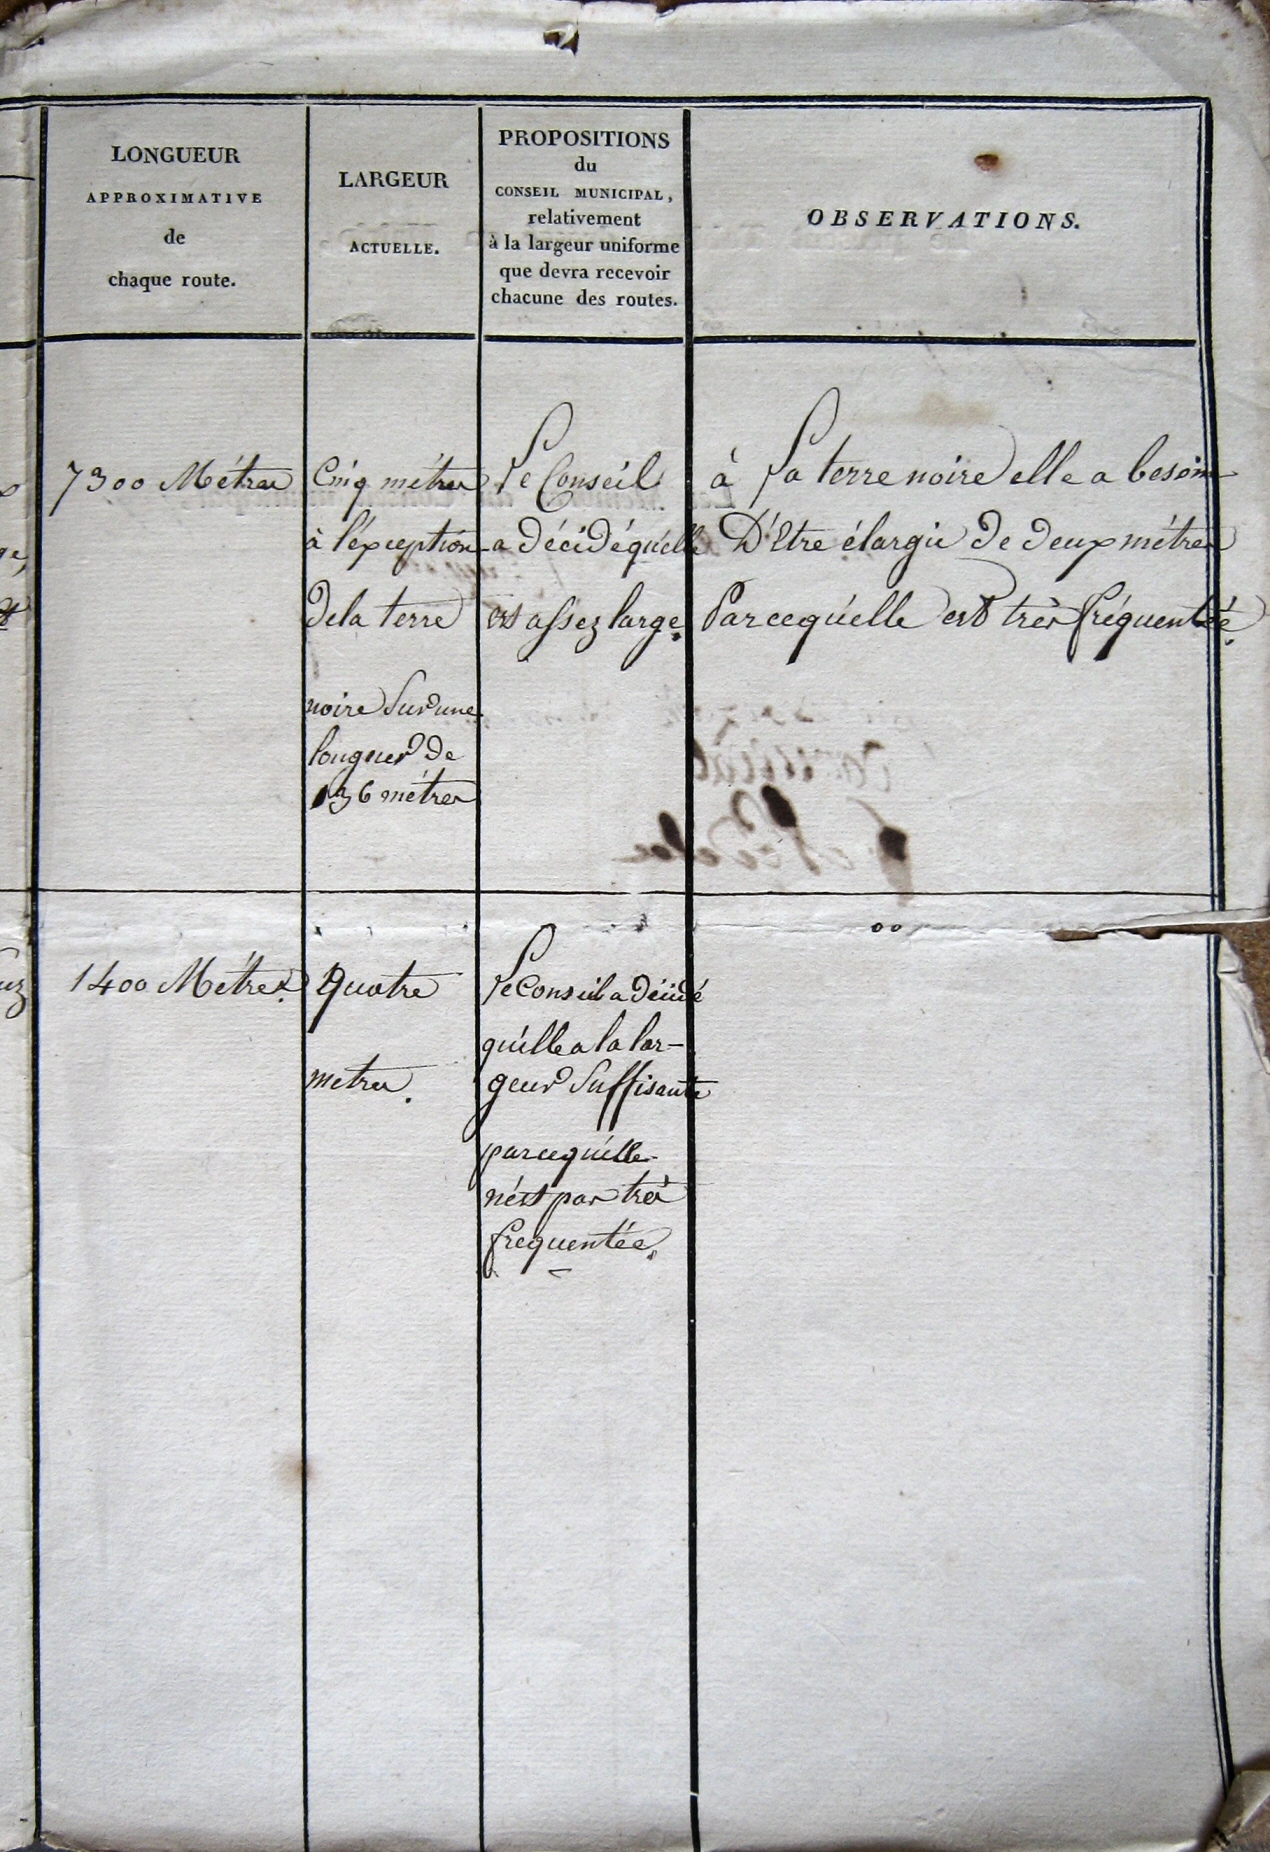 LONGUEUR
APPROXIMATIVE
de
chaque route.
LARGEUR
ACTUELLE.
PROPOSITIONS
du
CONSEIL MUNICIPAL,
relativement
à la largeur uniforme
que devra recevoir
chacune des routes.
OBSERVATIONS.
7300 Métres
Cinq métres
à l'éxception
dela terre
noire Sur une
longueur de
136 métres
Le Conseil
a décidé qu'elle
est assez large.
à La terre noire elle a besoin
D'Etre élargie de deux métres
Parcequ'elle est très fréquentée.
1400 Métres.
Quatre
metres.
Le Conseil a décidé
qu'elle a la lar-
geur Suffisante
parcequ'elle
n'est pas très
frequentée.